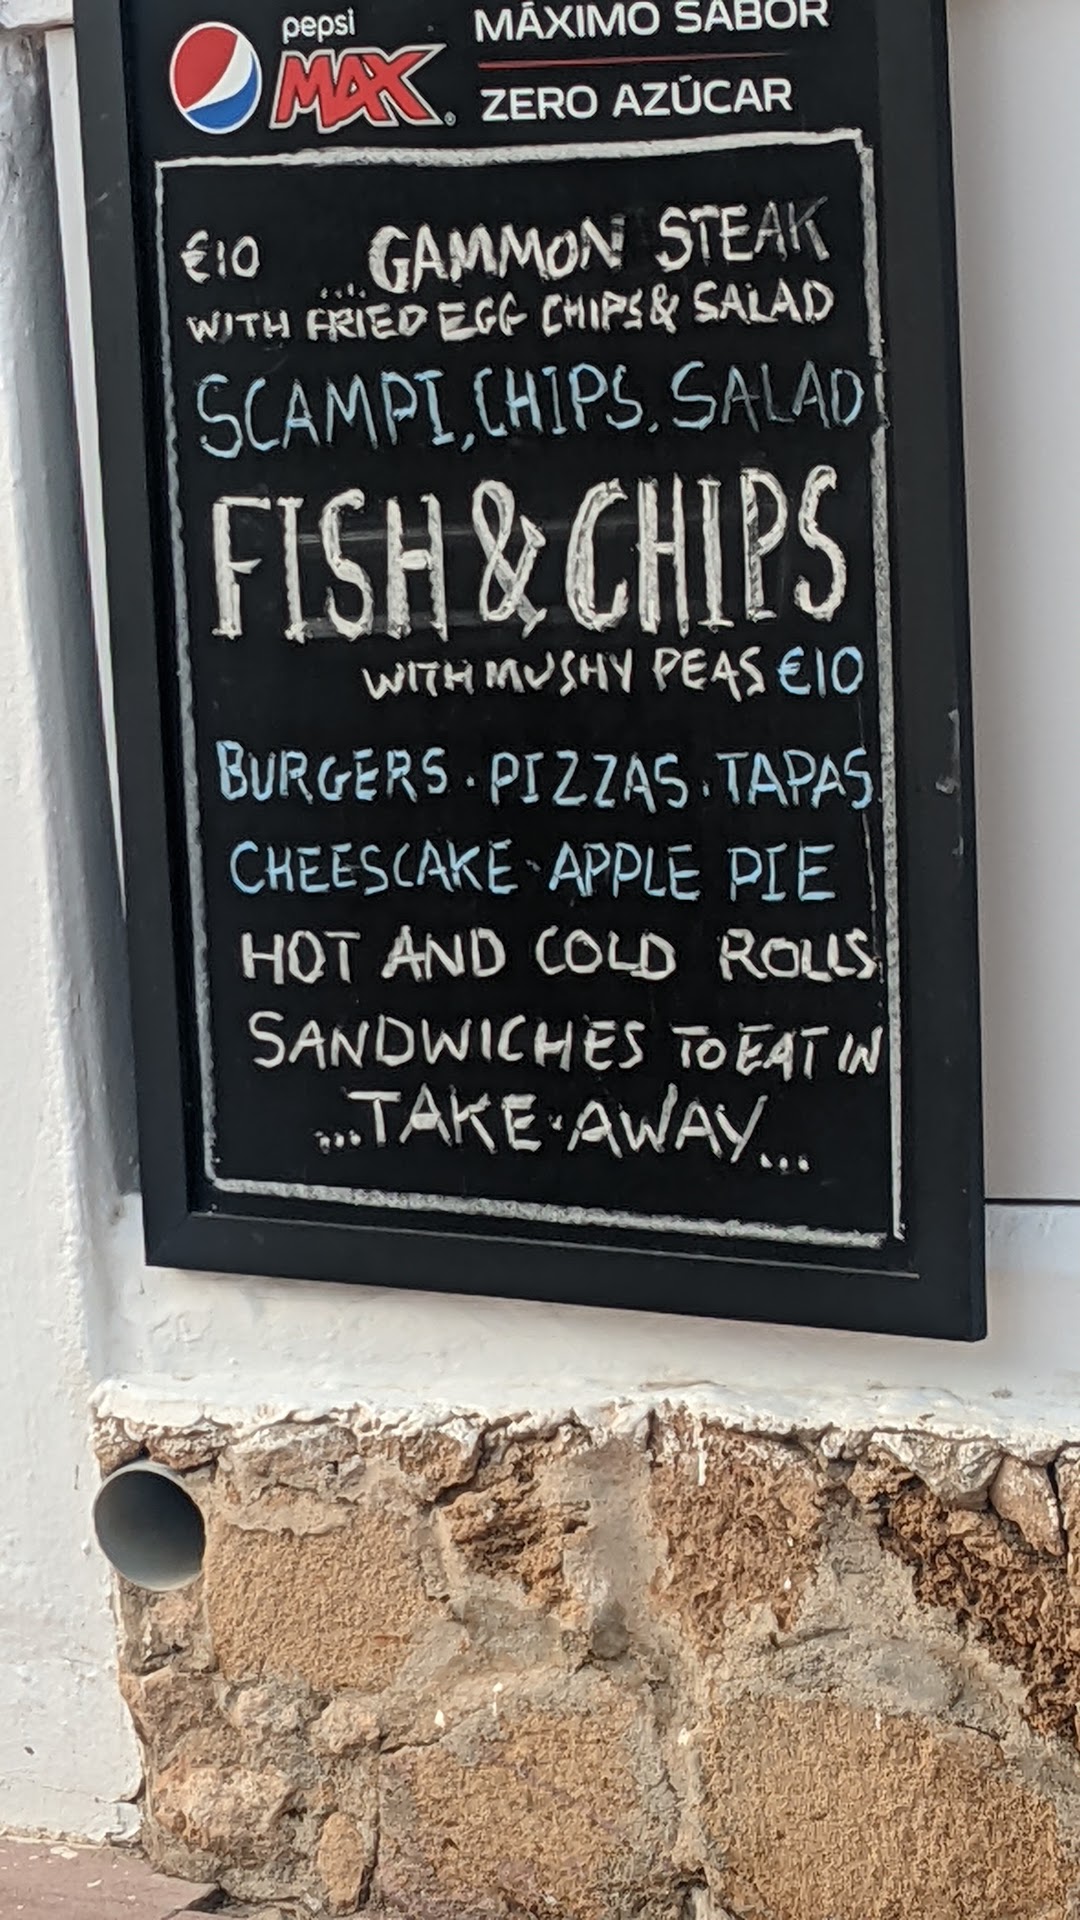 pepsi
MAX®
MÁXIMO SABOR
ZERO AZÚCAR
€10 ...GAMMON STEAK
WITH FRIED EGG CHIPS & SALAD
SCAMPI, CHIPS. SALAD
FISH & CHIPS
WITH MUSHY PEAS €10
BURGERS · PIZZAS · TAPAS
CHEESCAKE · APPLE PIE
HOT AND COLD ROLLS
SANDWICHES TO EAT IN
...TAKE·AWAY...